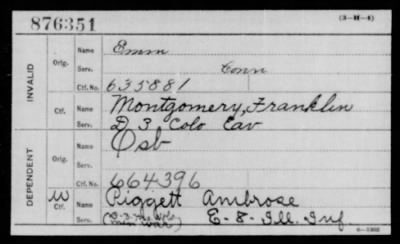 876351 (3-H-4)
INVALID
Orig. Name Emm
Serv. Conn
Ctf. No. 635881
Ctf. Name Montgomery, Franklin
Serv. D 3 Colo Cav
DEPENDENT
Orig. Name Osb
Serv.
Ctf. No. 664396
W Ctf. Name Piggett Ambrose
Serv. E-8-Ill. Inf.